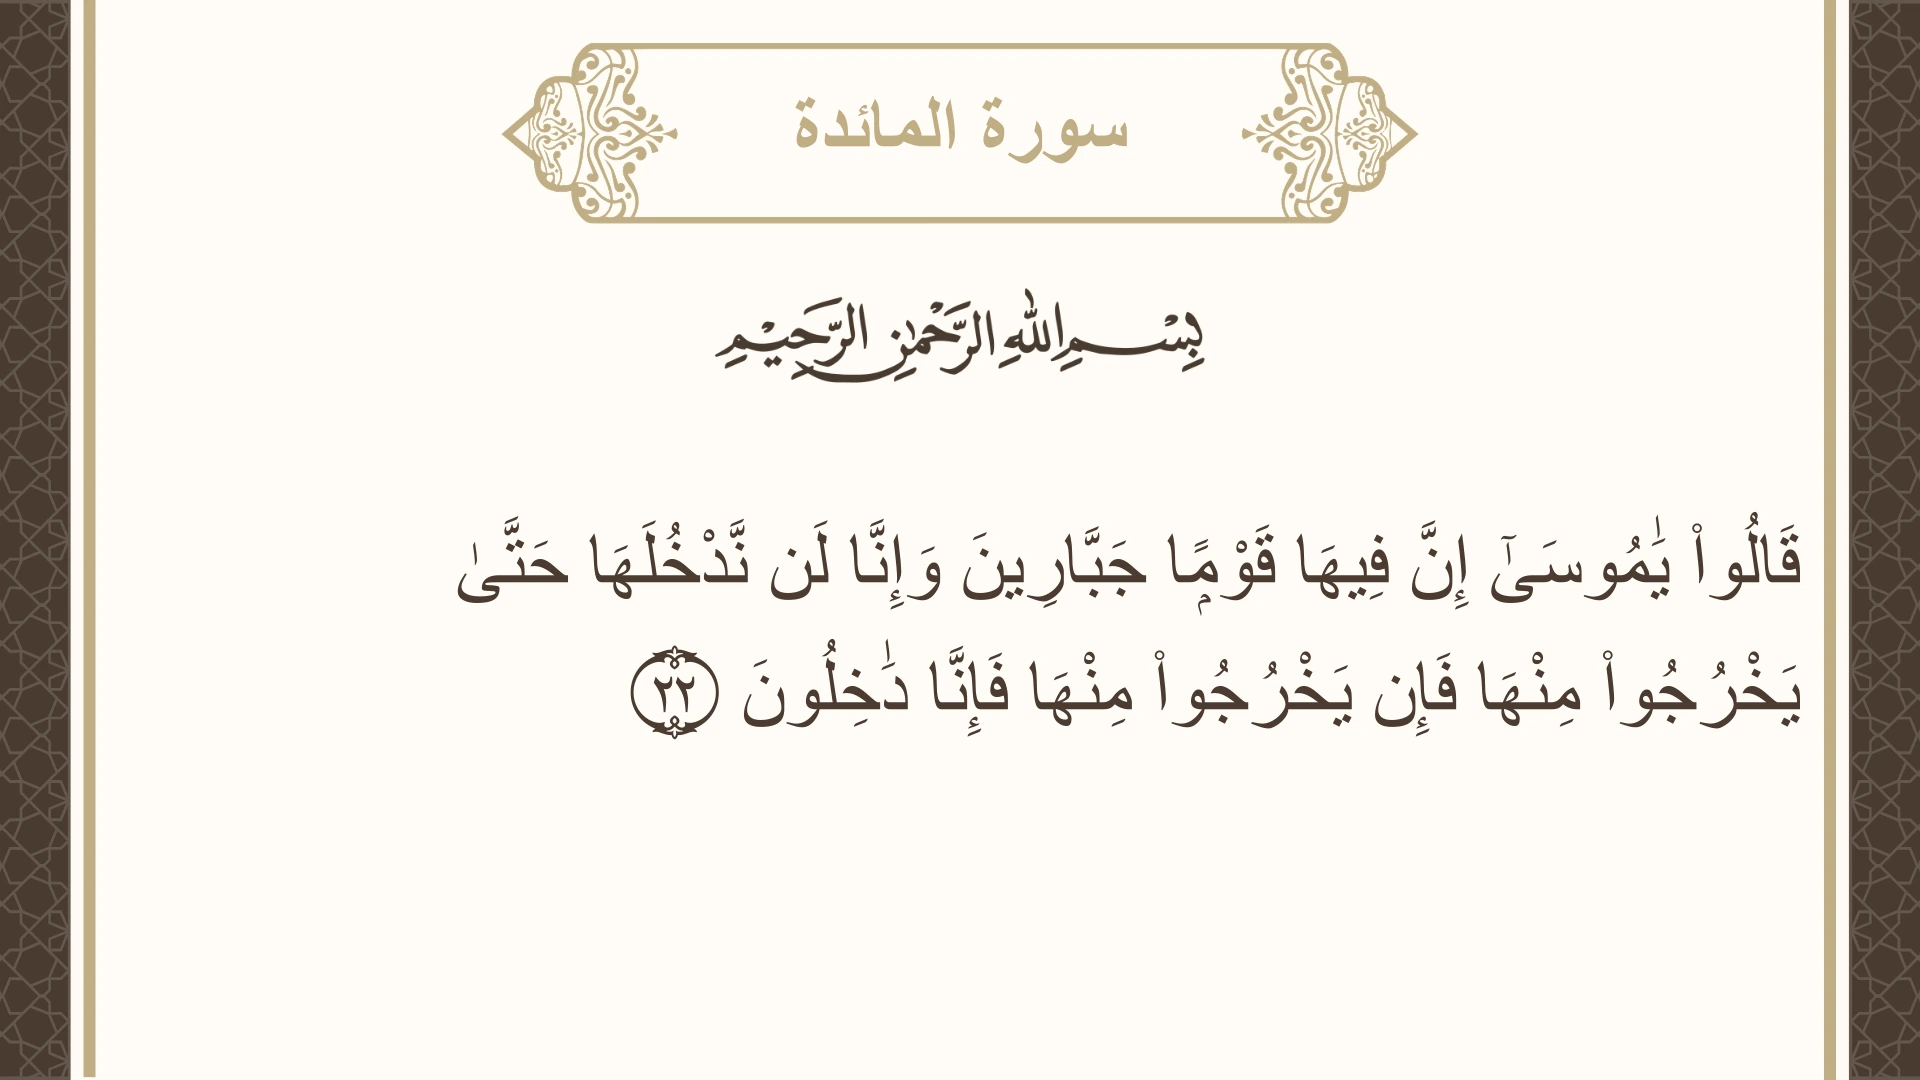 سورة المائدة
بِسْمِ اللهِ الرَّحْمٰنِ الرَّحِيْمِ
قَالُوا۟ يَٰمُوسَىٰٓ إِنَّ فِيهَا قَوْمًۭا جَبَّارِينَ وَإِنَّا لَن نَّدْخُلَهَا حَتَّىٰ
يَخْرُجُوا۟ مِنْهَا فَإِن يَخْرُجُوا۟ مِنْهَا فَإِنَّا دَٰخِلُونَ ٢٢